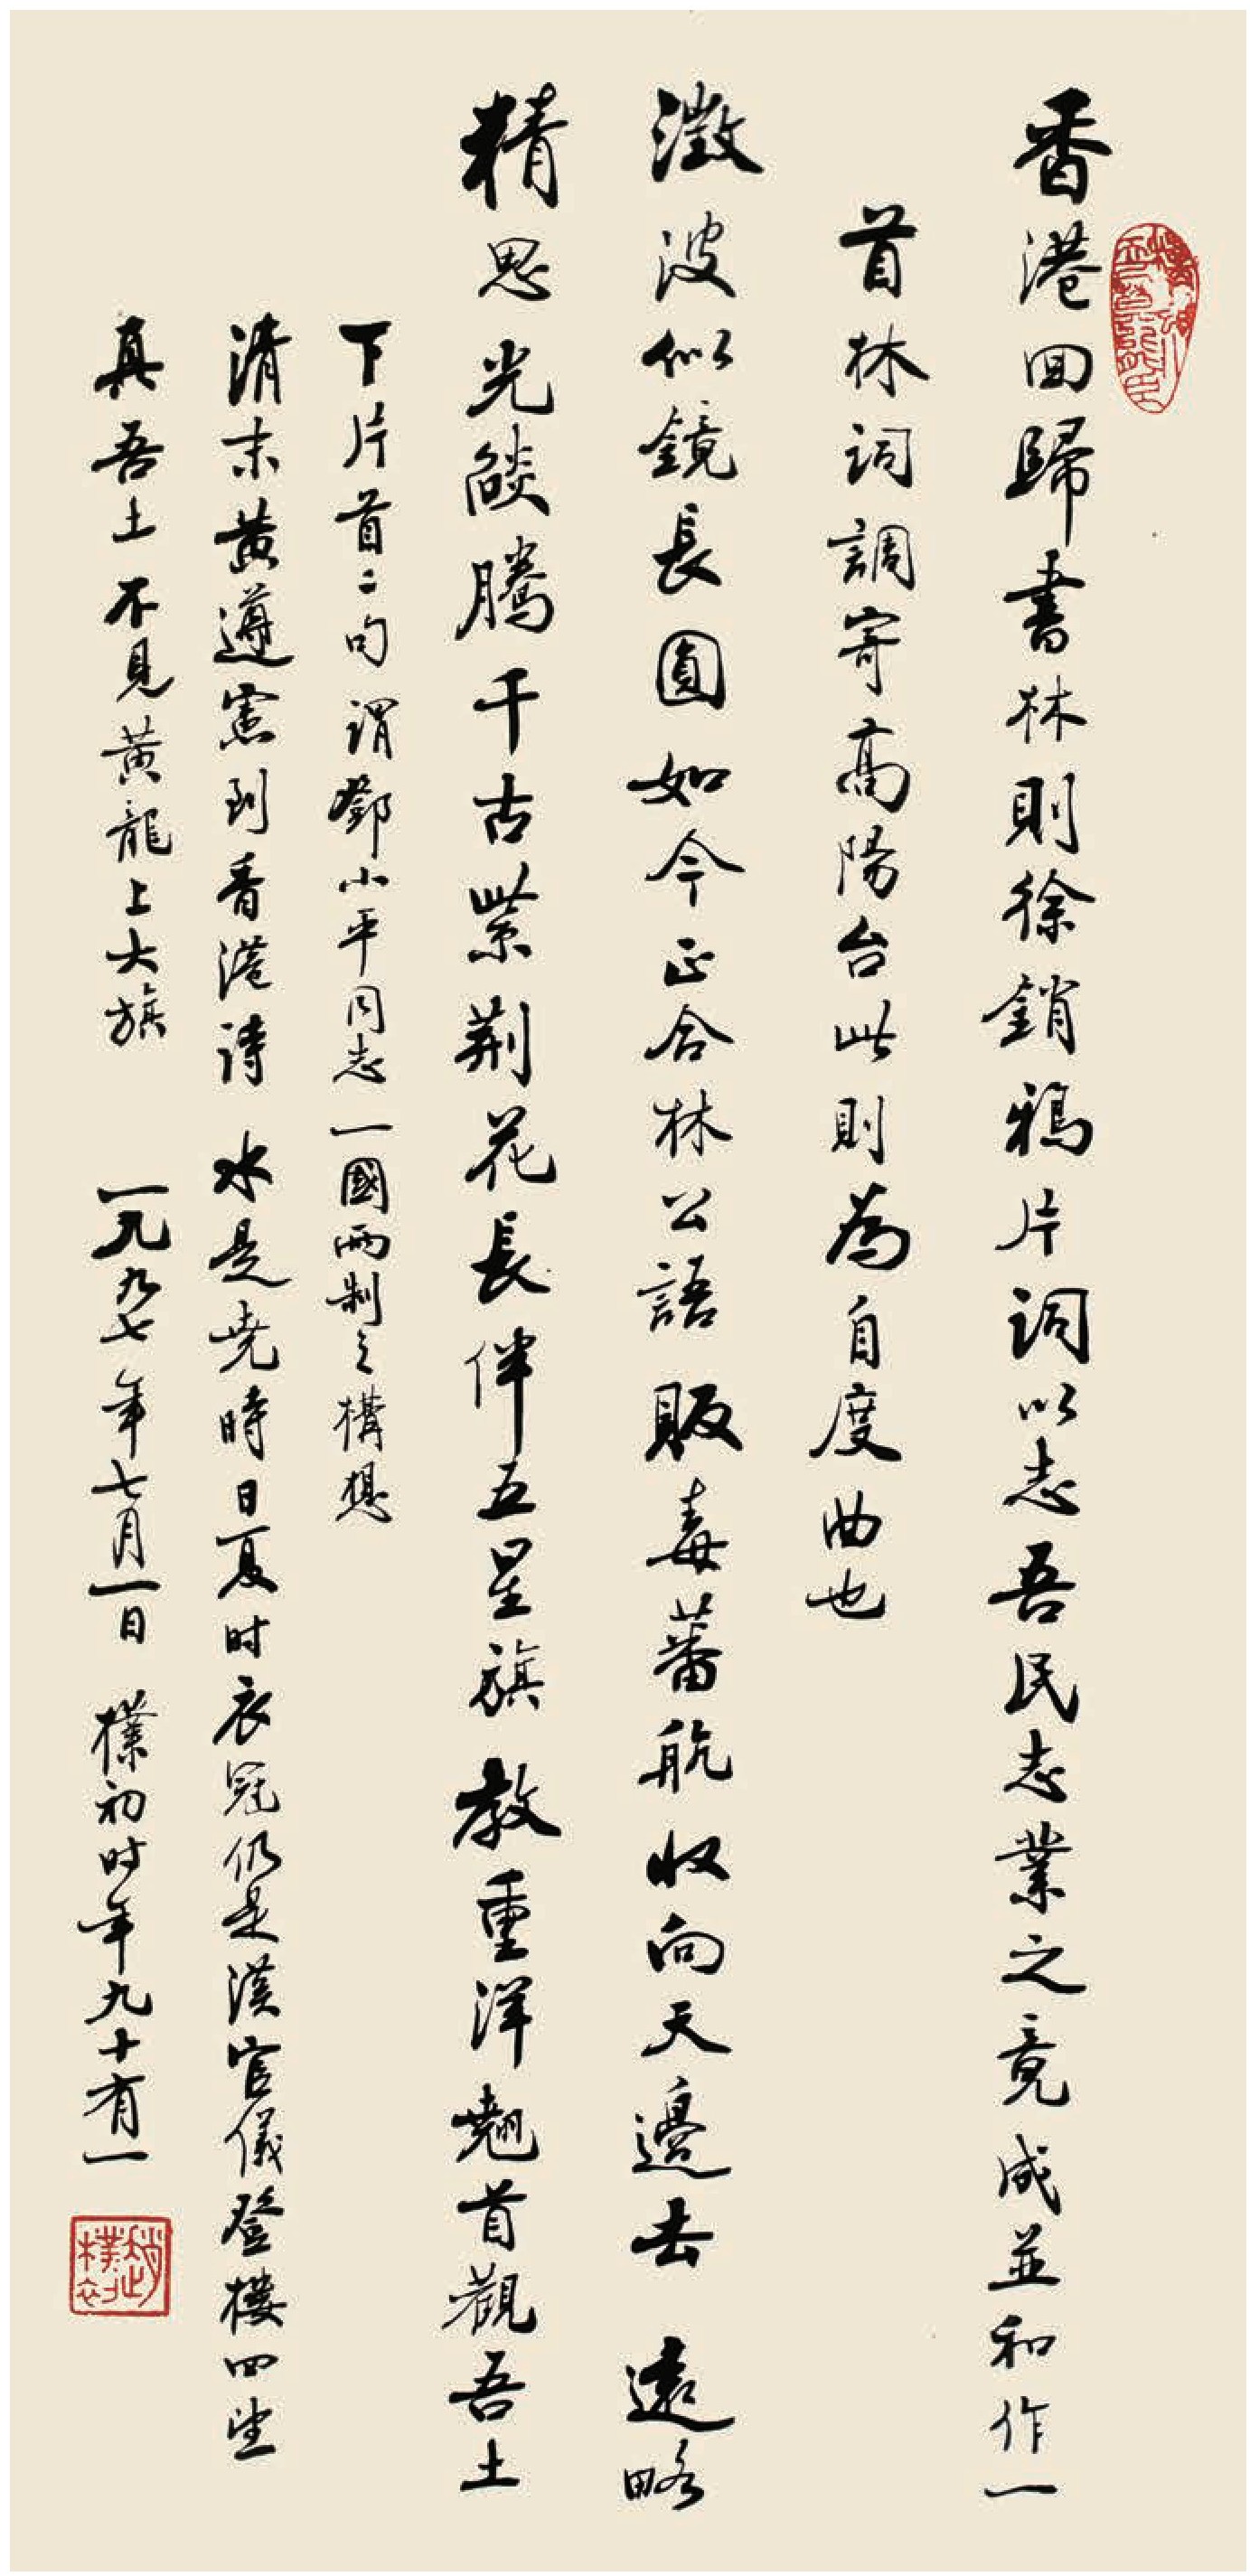 香港回歸書林則徐銷鴉片詞以志吾民志業之竟成並和作一
首林詞調寄高陽台此則為自度曲也
澂波似鏡長圓如今正合林公語販毒蕃航收向天邊去遠略
精思光燄騰千古紫荆花長伴五星旗教重洋翹首觀吾土
下片首二句謂鄧小平同志一國兩制之構想
清末黃遵憲到香港詩水是堯時日夏时衣冠仍是漢官儀登樓四望
真吾土不見黃龍上大旗 一九九七年七月一日 樸初时年九十有一
趙樸初